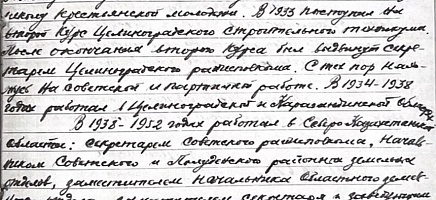 школу крестьянской молодежи. В 1933 поступил на
второй курс Целиноградского строительного техникума.
После окончания второго курса был выдвинут секре-
тарем Целиноградского райисполкома. С тех пор нахо-
жусь на советской и партийной работе. В 1934-1938
годах работал в Целиноградской и Карагандинской области
В 1938-1952 годах работал в Северо Казахстанской
области: секретарем Советского райисполкома, Началь-
ником Советского и Полуденского районных земельных
отделов, заместителем начальника областного земель-
заместителем секретаря и заведующим